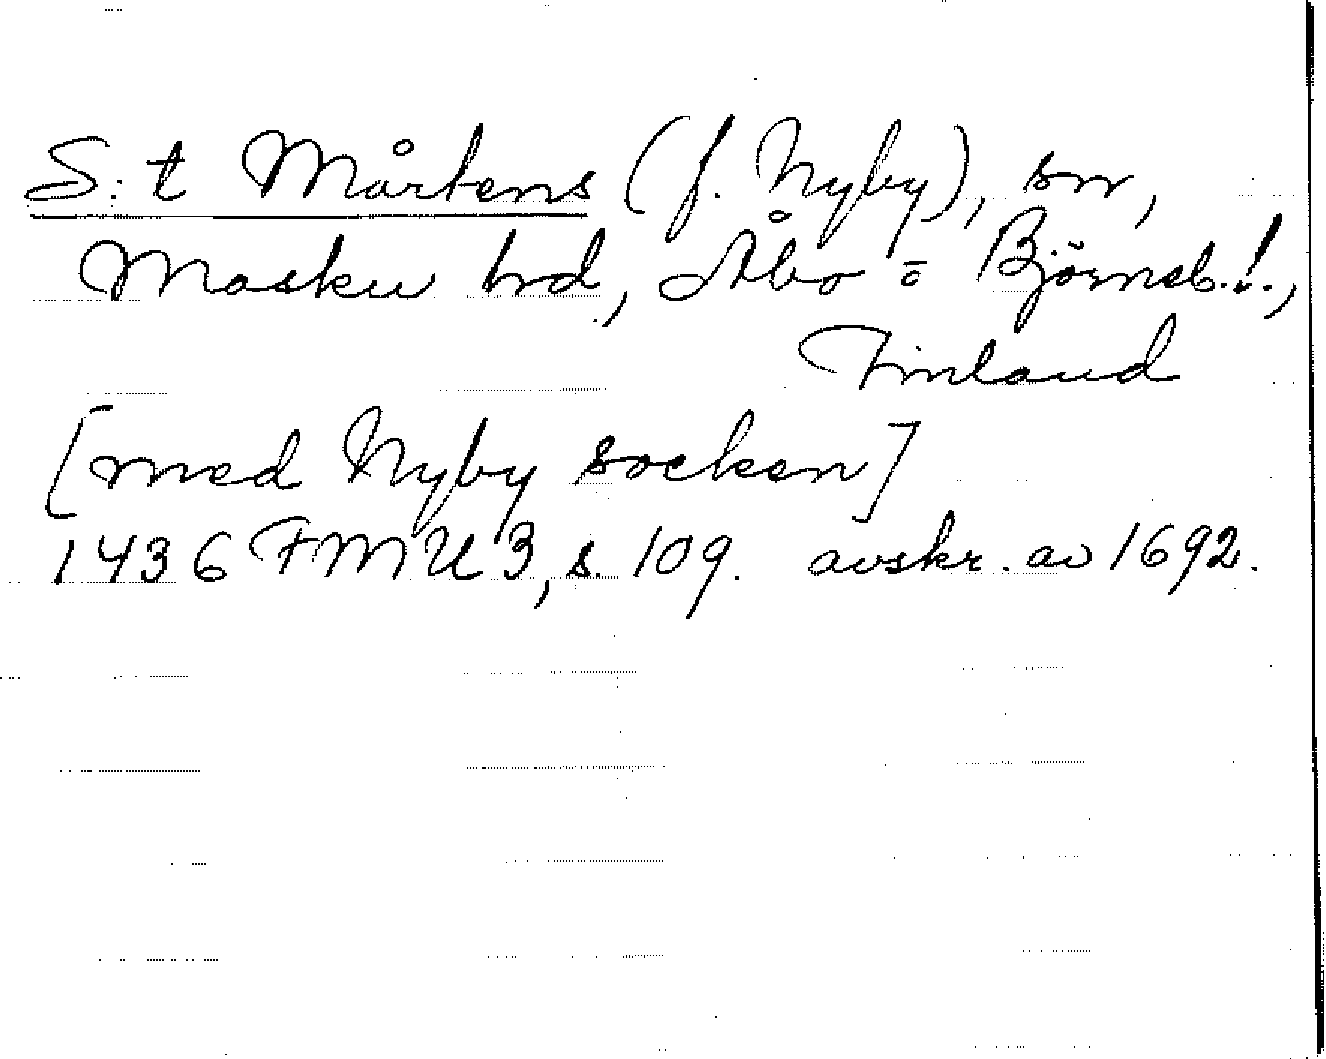 S:t Mårtens (f. Nyby), sn,
Masku hd, Åbo = Björneb. l.,
Finland
[med Nyby socken]
1436 FMU 3, s. 109. avskr. av 1692.